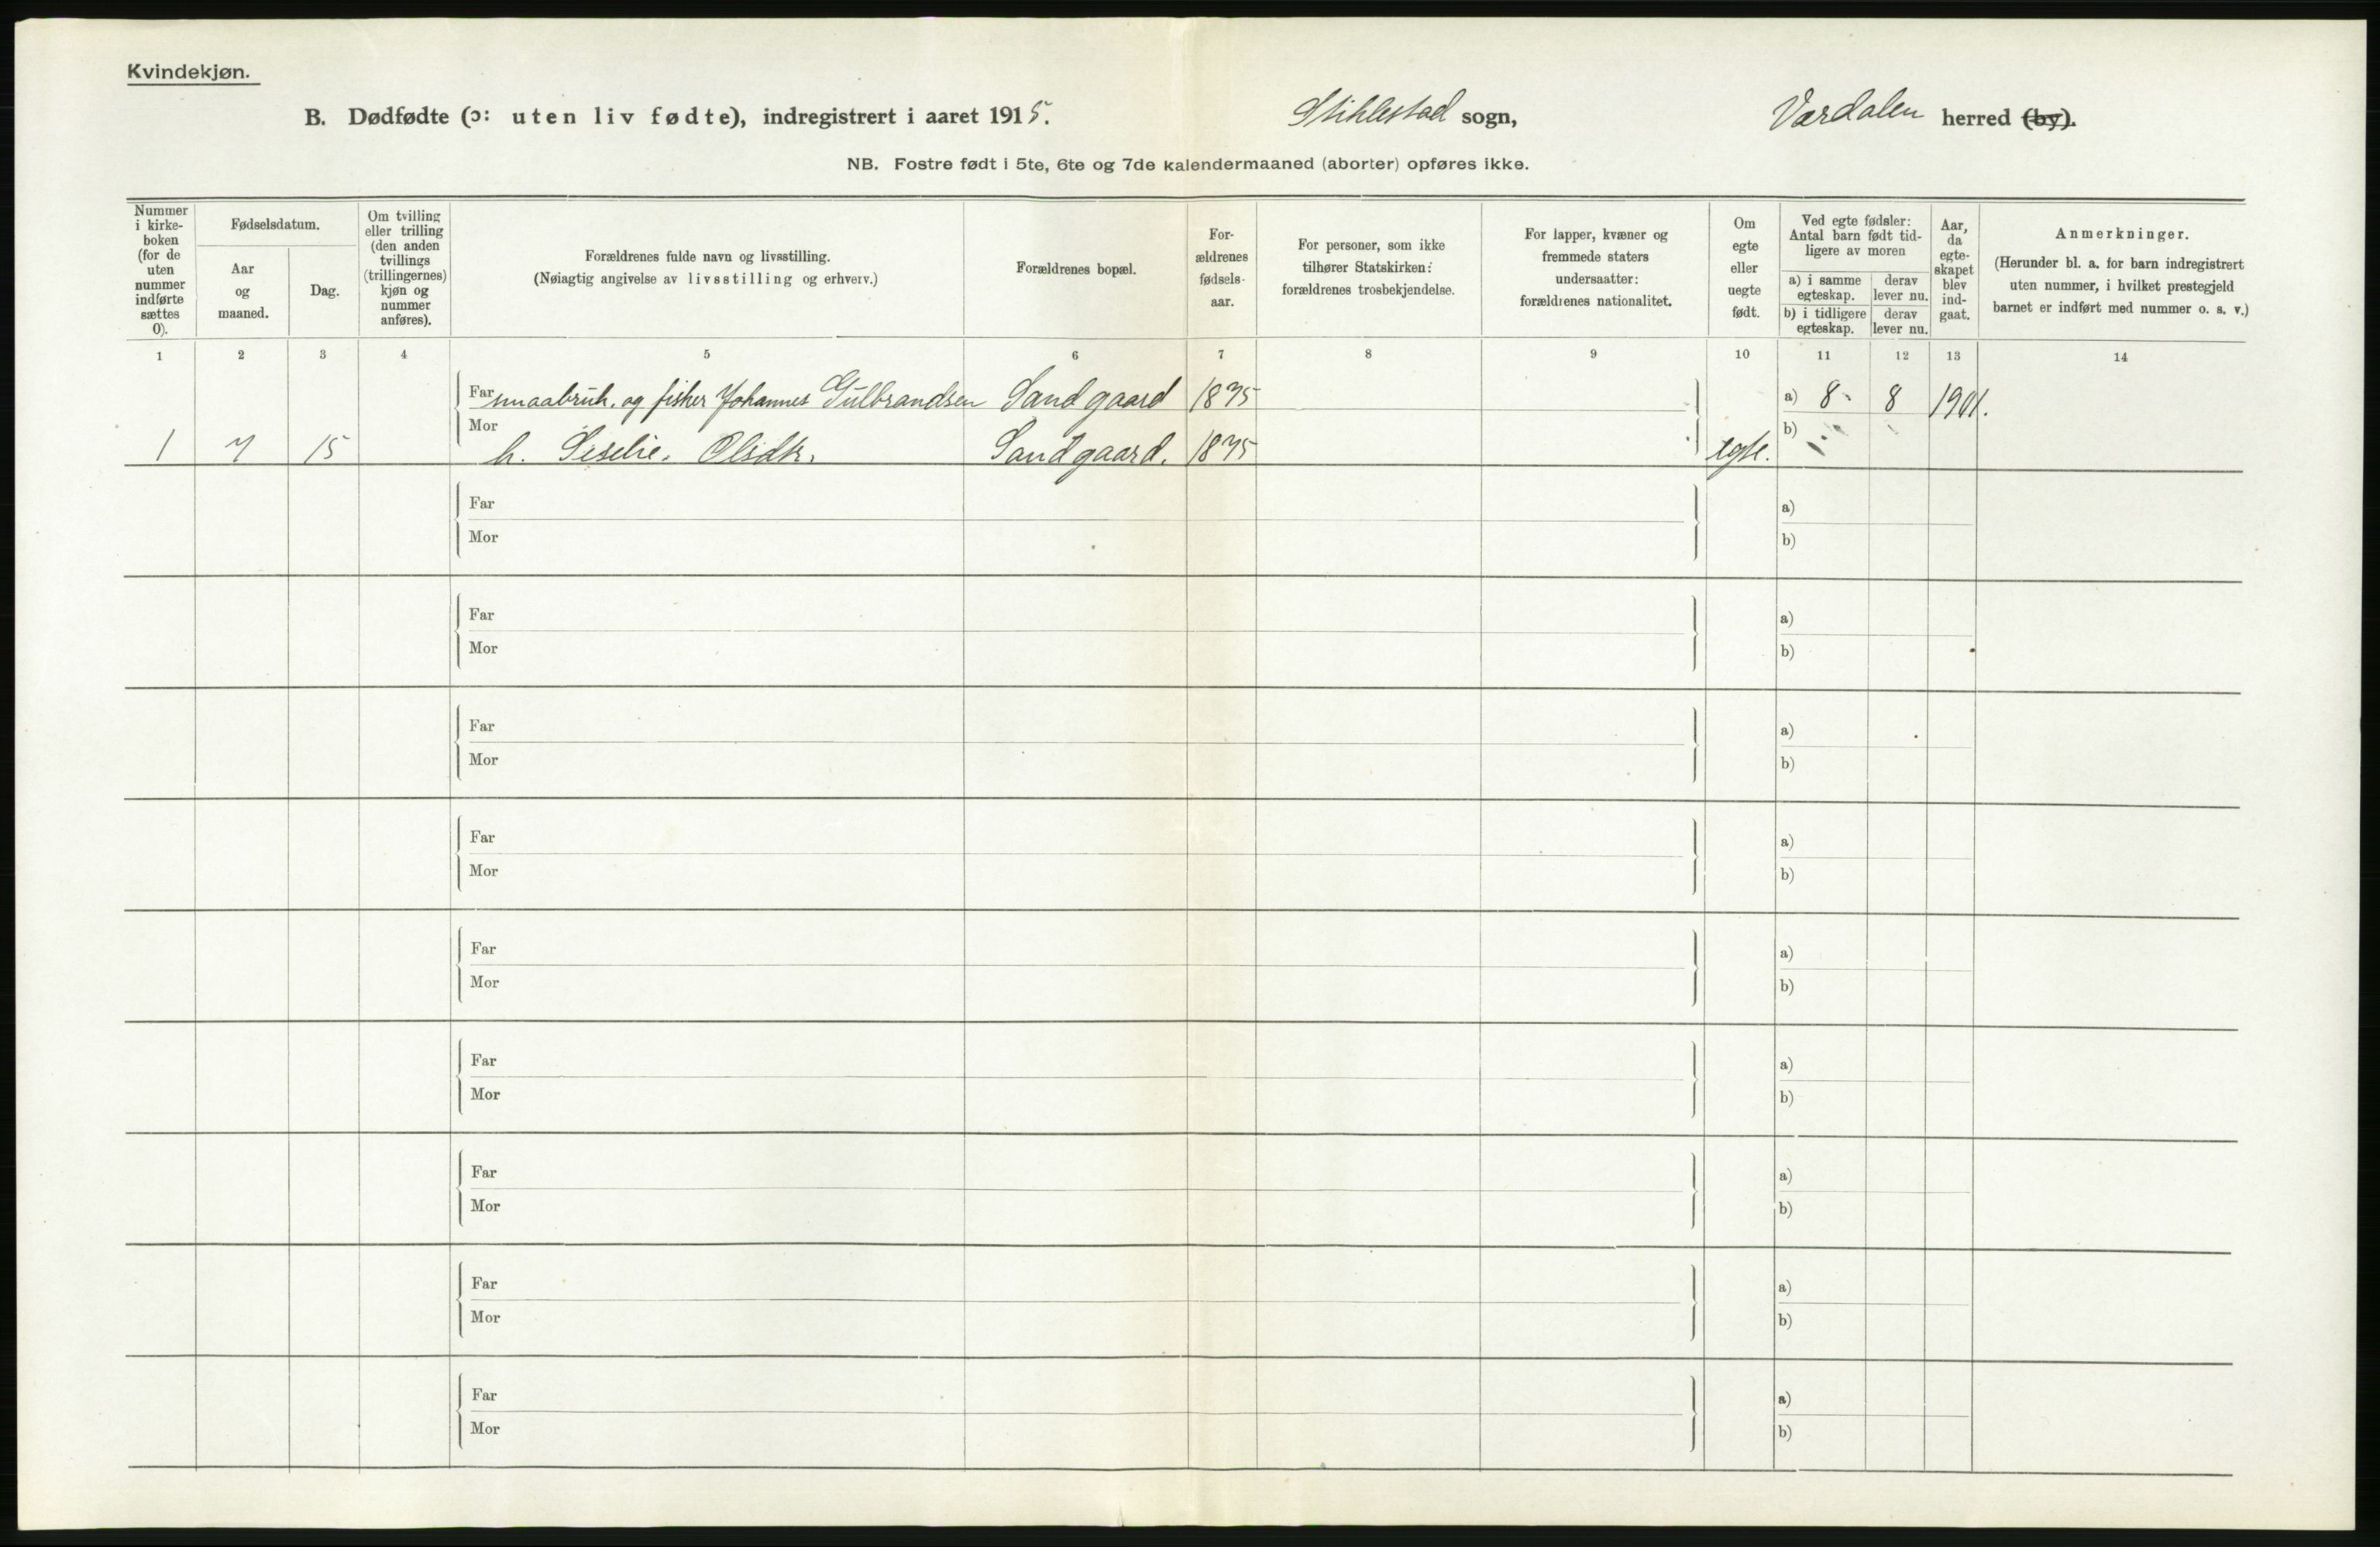 Kvindekjøn.
B. Dødfødte (ɔ: uten liv fødte), indregistrert i aaret 1915. Stiklestad sogn, Værdalen herred (by).
NB. Fostre født i 5te, 6te og 7de kalendermaaned (aborter) opføres ikke.
Nummer
i kirke-
boken
(for de
uten
nummer
indførte
sættes
0).
Fødselsdatum.
Aar
og
maaned.
Dag.
Om tvilling
eller trilling
(den anden
tvillings
(trillingernes)
kjøn og
nummer
anføres).
Forældrenes fulde navn og livsstilling.
(Nøiagtig angivelse av livsstilling og erhverv.)
Forældrenes bopæl.
For-
ældrenes
fødsels-
aar.
For personer, som ikke
tilhører Statskirken:
forældrenes trosbekjendelse.
For lapper, kvæner og
fremmede staters
undersaatter:
forældrenes nationalitet.
Om
egte
eller
uegte
født.
Ved egte fødsler:
Antal barn født tid-
ligere av moren
a) i samme
egteskap.
derav
lever nu.
b) i tidligere
egteskap.
derav
lever nu.
Aar,
da
egte-
skapet
blev
ind-
gaat.
Anmerkninger.
(Herunder bl. a. for barn indregistrert
uten nummer, i hvilket prestegjeld
barnet er indført med nummer o. s. v.)
1 2 3 4 5 6 7 8 9 10 11 12 13 14
Far smaabruk. og fisker Johannes Gulbrandsen Sandgaard 1875 a) 8 8 1901.
Mor b)
1 7 15 h. Seselie Olsdtr. Sandgaard. 1875 egte.
Far a)
Mor b)
Far a)
Mor b)
Far a)
Mor b)
Far a)
Mor b)
Far a)
Mor b)
Far a)
Mor b)
Far a)
Mor b)
Far a)
Mor b)
Far a)
Mor b)